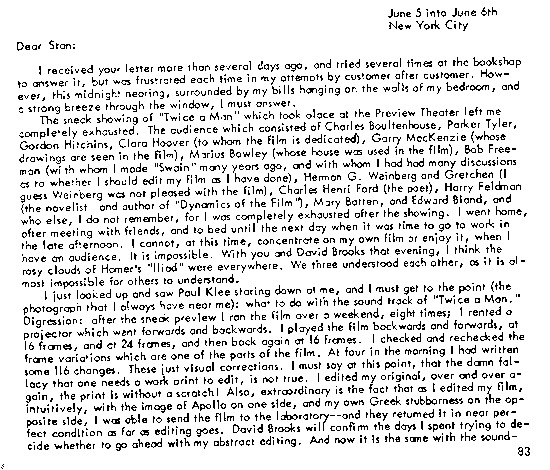 June 5 into June 6th
New York City
Dear Stan:
I received your letter more than several days ago, and tried several times at the bookshop
to answer it, but was frustrated each time in my attempts by customer after customer. How-
ever, this midnight nearing, surrounded by my bills hanging on the walls of my bedroom, and
a strong breeze through the window, I must answer.
The sneak showing of "Twice a Man" which took place at the Preview Theater left me
completely exhausted. The audience which consisted of Charles Boultenhouse, Parker Tyler,
Gordon Hitchins, Clara Hoover (to whom the film is dedicated), Garry MacKenzie (whose
drawings are seen in the film), Marius Bowley (whose house was used in the film), Bob Free-
man (with whom I made "Swain" many years ago, and with whom I had had many discussions
as to whether I should edit my film as I have done), Herman G. Weinberg and Gretchen (I
guess Weinberg was not pleased with the film), Charles Henri Ford (the poet), Harry Feldman
(the novelist and author of "Dynamics of the Film"), Mary Batten, and Edward Bland, and
who else, I do not remember, for I was completely exhausted after the showing. I went home,
after meeting with friends, and to bed until the next day when it was time to go to work in
the late afternoon. I cannot, at this time, concentrate on my own film or enjoy it, when I
have an audience. It is impossible. With you and David Brooks that evening, I think the
rosy clouds of Homer's "Iliad" were everywhere. We three understood each other, as it is al-
most impossible for others to understand.
I just looked up and saw Paul Klee staring down at me, and I must get to the point (the
photograph that I always have near me): what to do with the sound track of "Twice a Man."
Digression: after the sneak preview I ran the film over a weekend, eight times; I rented a
projector which went forwards and backwards. I played the film backwards and forwards, at
16 frames, and at 24 frames, and then back again at 16 frames. I checked and rechecked the
frame variations which are one of the parts of the film. At four in the morning I had written
some 116 changes. These just visual corrections. I must say at this point, that the damn fal-
lacy that one needs a work print to edit, is not true. I edited my original, over and over a-
gain, the print is without a scratch! Also, extraordinary is the fact that as I edited my film,
intuitively, with the image of Apollo on one side, and my own Greek stubborness on the op-
posite side, I was able to send the film to the laboratory--and they returned it in near per-
fect condition as far as editing goes. David Brooks will confirm the days I spent trying to de-
cide whether to go ahead with my abstract editing. And now it is the same with the sound-
83